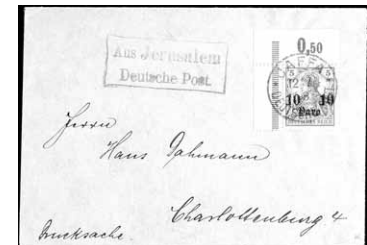 0,50
Aus Jerusalem
Deutsche Post.
JAFFA
10 10
Para
Herrn
Hans Dahmann
Charlottenburg 4
Drucksache